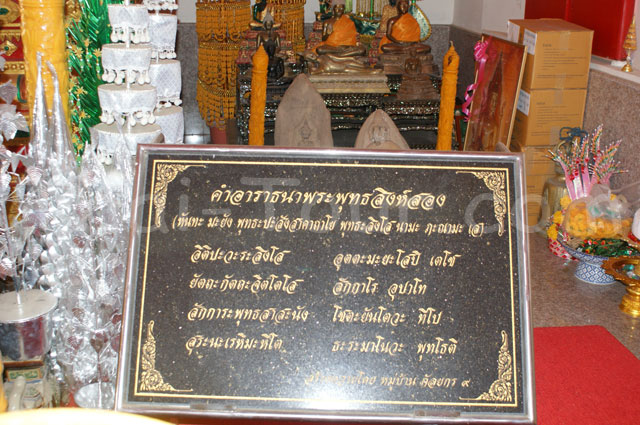 คำอาราธนาพระพุทธสิหิงค์สอง
(หันทะ มะยัง พุทธะปะสังสาคาถาโย พุทธะสิงโส นามะ ภะณามะ เส)
อิติปะวะระสิงโส อุตตะมะยะโสปิ เตโช
ยัตถะกัตถะจิตโตโส สักกาโร อุปาโท
สักการะพุทธสาสะนัง โชตะยันโตวะ ทีโป
สุระนะเรหิมะหิโต ธะระมาโนวะ พุทโธติ
หมู่บ้าน